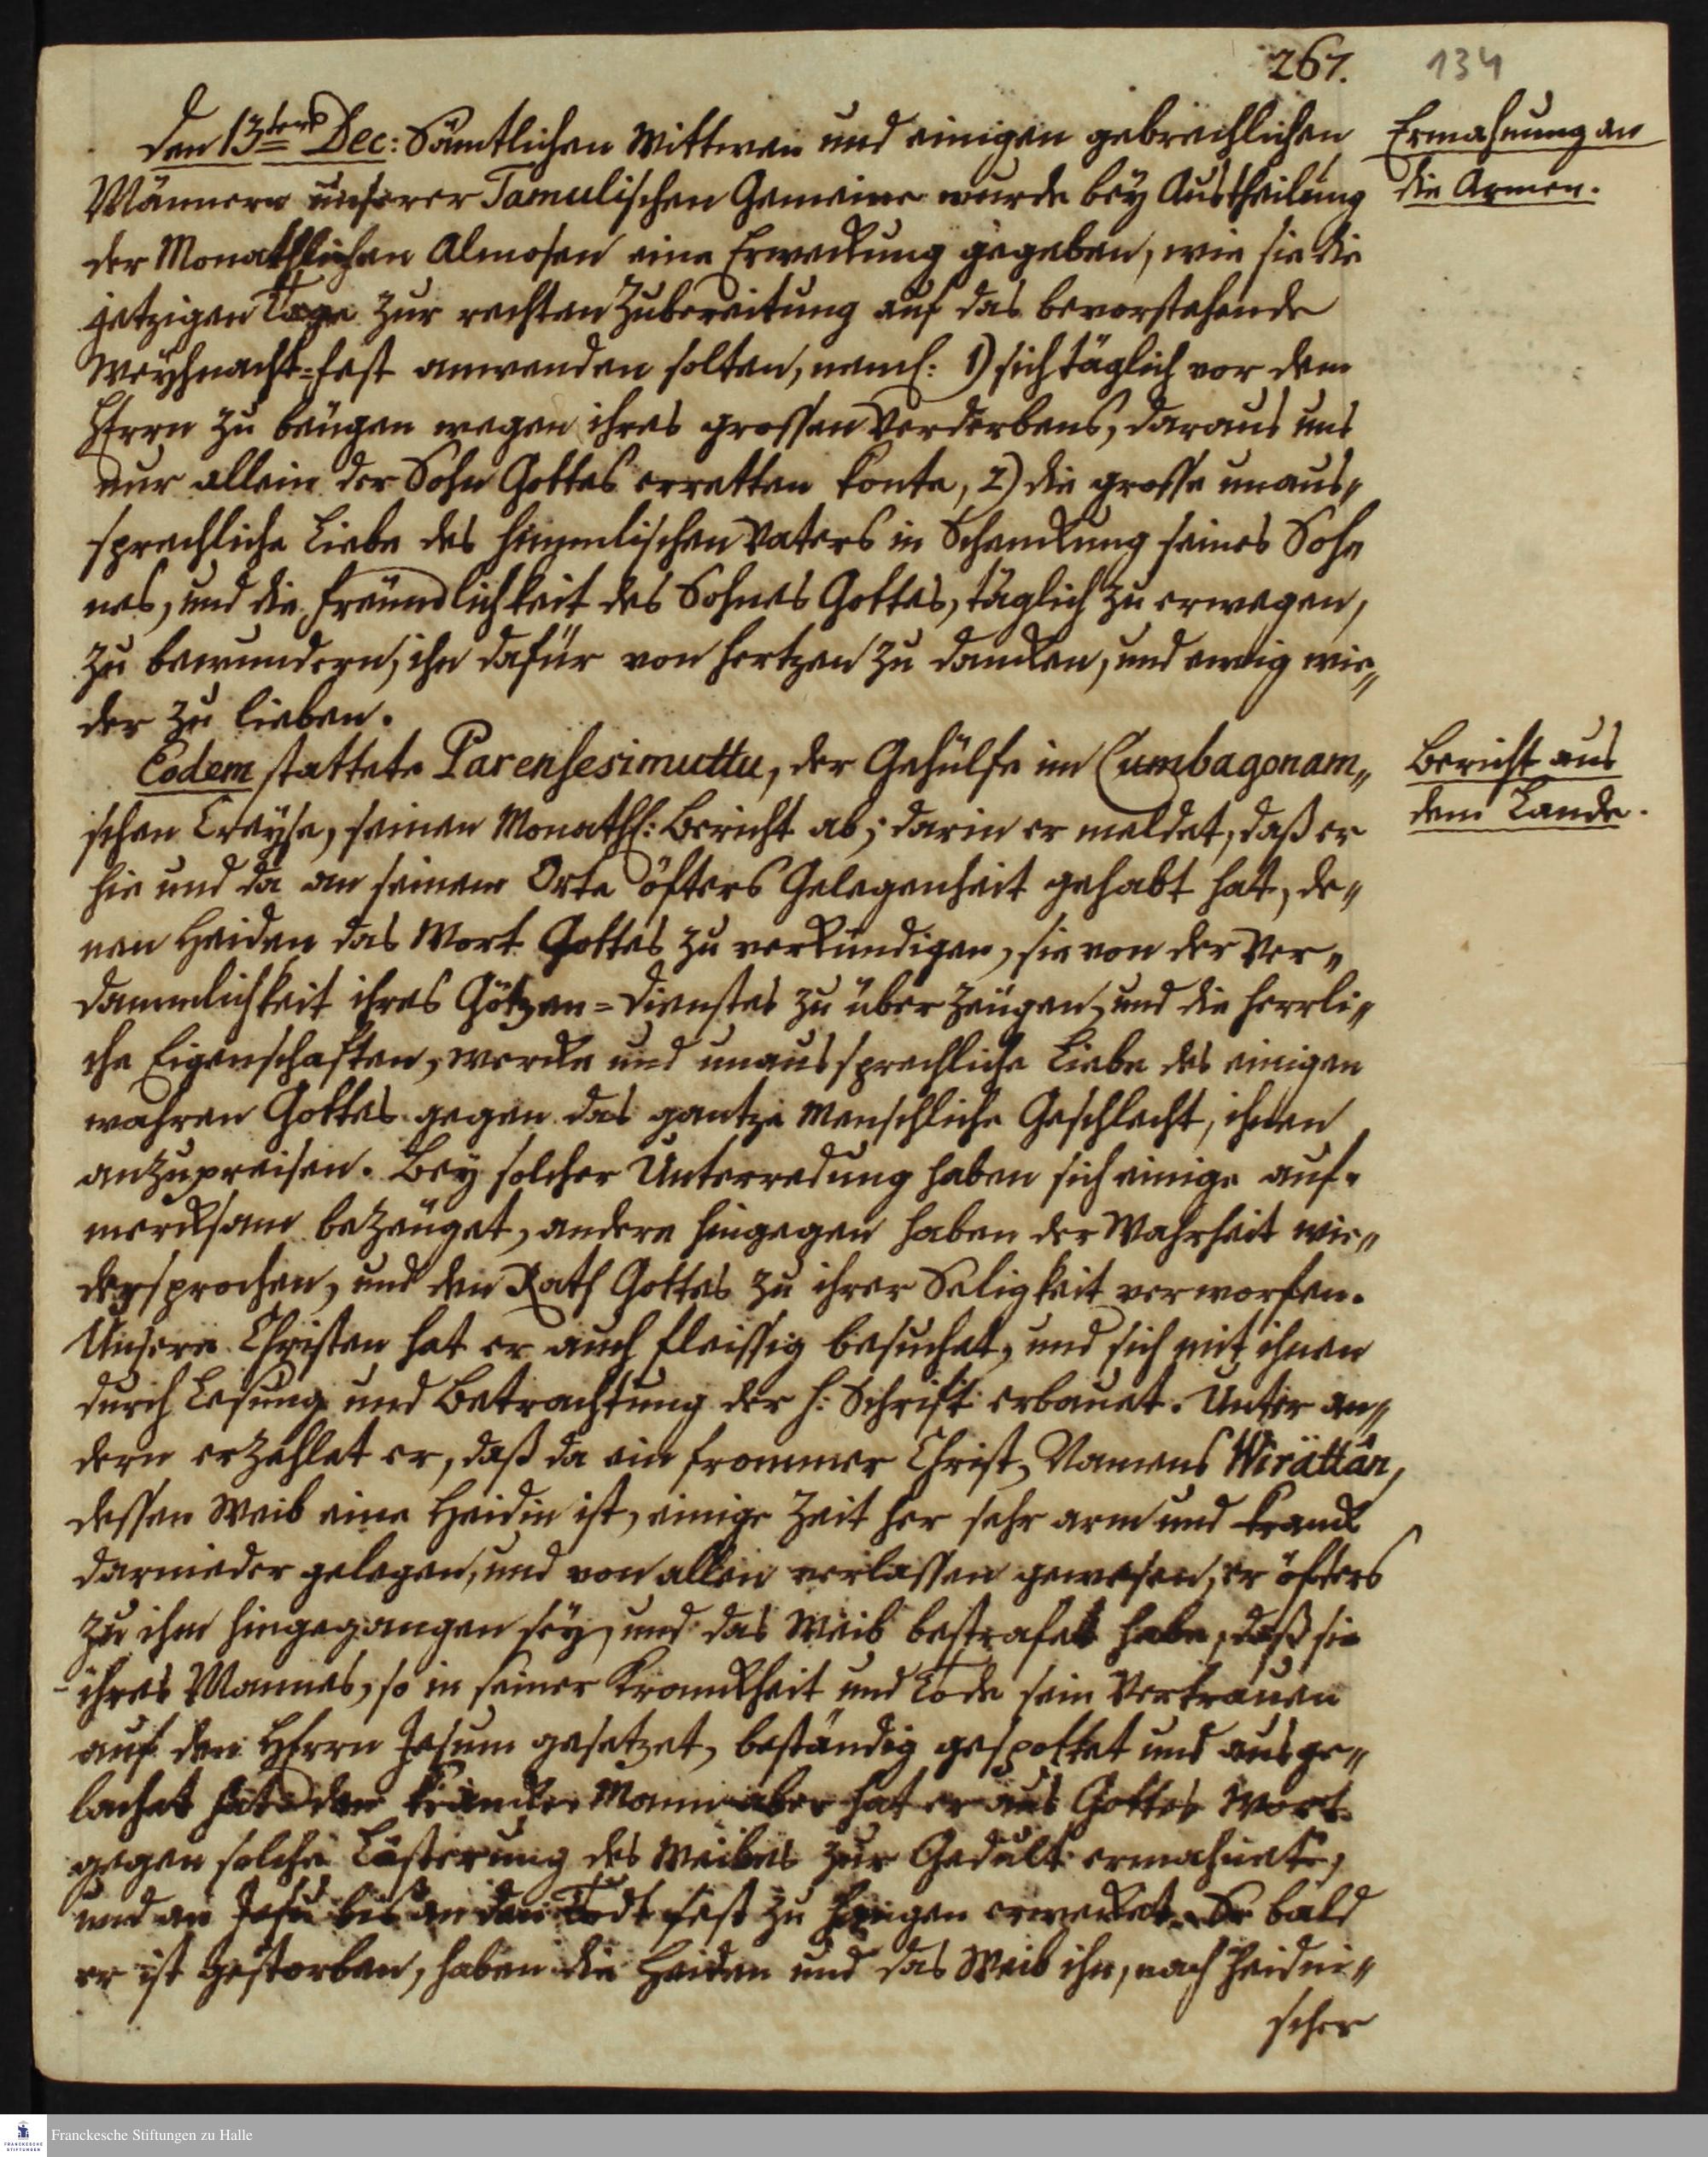 267.
134
Den 13ten Dec: Sämtlichen Wittwen und einigen gebrechlichen
Ermahnung an
Männern unserer Tamulischen Gemeine wurde bey Austheilung
die Armen.
der Monathlichen Almosen eine Erweckung gegeben, wie sie die
jetzigen Tage zur rechten Zubereitung auf das bevorstehende
Weyhnacht=fest anwenden solten, neml: 1) sich täglich vor dem
HErrn zu beugen wegen ihres grossen Verderbens, daraus uns
nur allein der Sohn Gottes erretten konte, 2) die grosse unaus„
sprechliche Liebe des himmlischen Vaters in Schenckung seines Soh„
nes, und die freundlichkeit des Sohnes Gottes, täglich zu erwegen,
zu bewundern, ihn dafür von hertzen zu dancken, und ewig wie„
der zu lieben.
Eodem stattete Parensesimuttu, der Gehülfe im Cumbagonam„
Bericht aus
schen Creyse, seinen Monathl: Bericht ab; darin er meldet, daß er
dem Lande.
hie und da an seinem Orte öfters Gelegenheit gehabt hat, de„
nen Heiden das Wort Gottes zu verkündigen, sie von der Ver„
dammlichkeit ihres Götzen=Dienstes zu überzeugen, und die herrli„
che Eigenschaften, wercke und unaussprechliche Liebe des einigen
wahren Gottes gegen das gantze menschliche Geschlecht, ihnen
anzupreisen. Bey solcher Unterredung haben sich einige auf„
mercksam bezeuget, andere hingegen haben der Wahrheit wie„
dersprochen, und den Rath Gottes zu ihrer Seligkeit verworfen.
Unsere Christen hat er auch fleissig besuchet, und sich mit ihnen
durch Lesung und Betrachtung der h: Schrift erbauet. Unter an„
dern erzehlet er, daß da ein frommer Christ, Namens Wirättân,
dessen Weib eine Heidin ist, einige Zeit her sehr arm und kranck
darnieder gelegen, und von allen verlassen gewesen, er öfters
zu ihm hingegangen sey, und das Weib bestrafet habe, daß sie
ihres Mannes, so in seiner Kranckheit und Tode sein Vertrauen
auf den HErrn Jesum gesetzet, beständig gespottet und ausge„
lachet hat. den krancken Mann aber hat er aus Gottes Wort
gegen solche Lästerung des Weibes zur Gedult ermahnet,
und an Jesu bis an den Todt fest zu hangen erwecket. So bald
er ist gestorben, haben die Heiden und das Weib ihn, nach heidni„
scher
Franckesche Stiftungen zu Halle